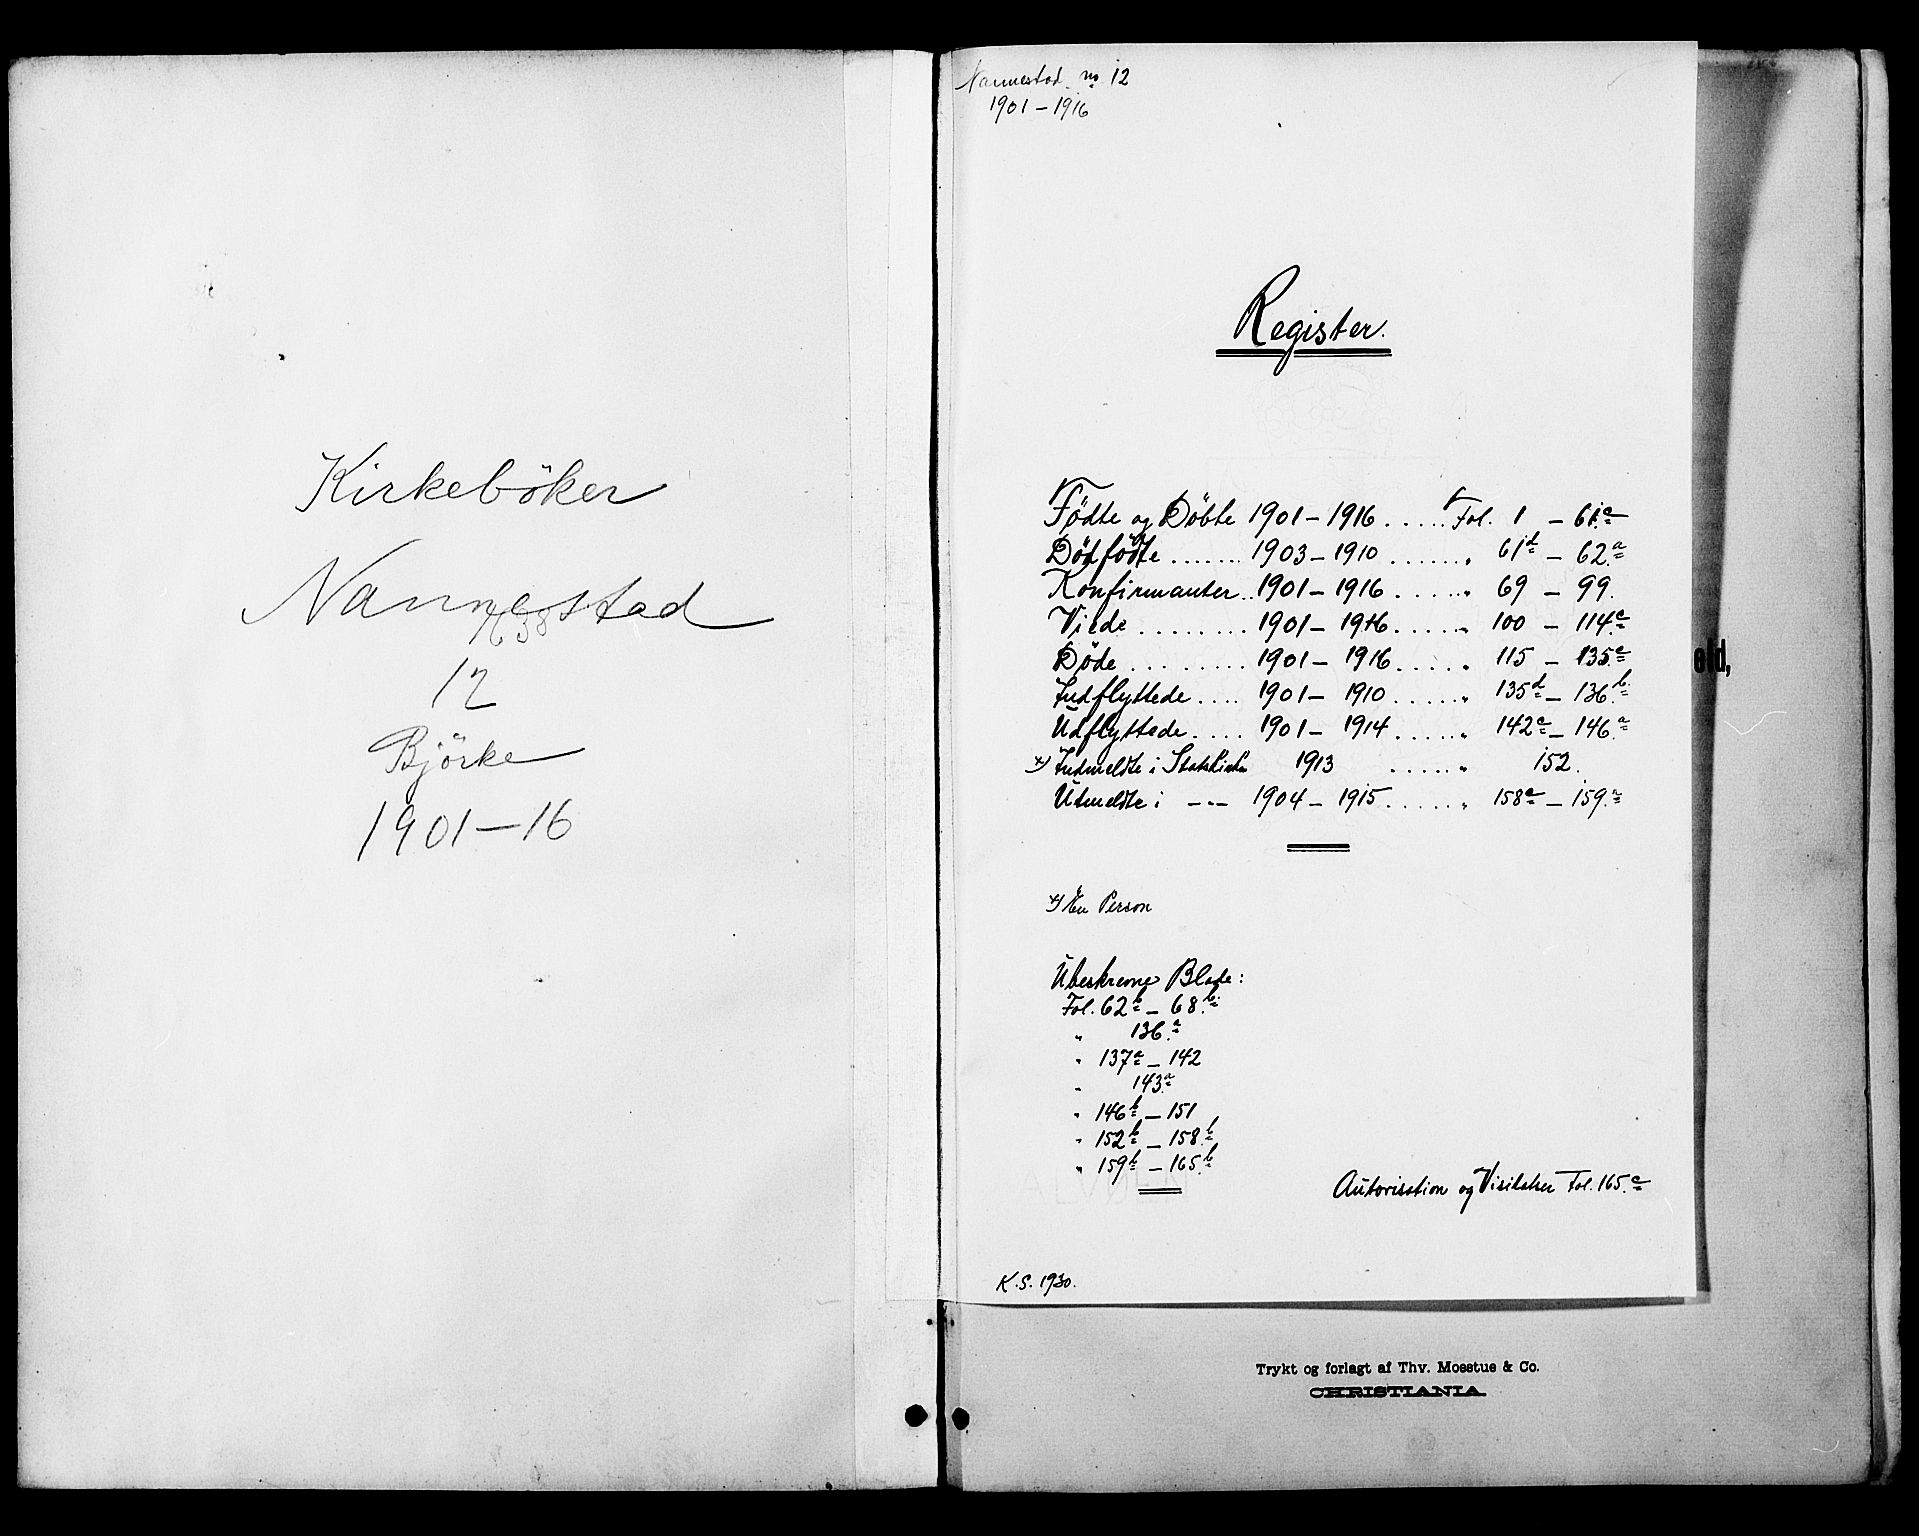 Kirkeböker
Nannestad
1638
12
Björke
1901-16
Nannestad no 12
1901-1916
Register.
Födte og Döbte 1901-1916 ..... Fol. 1 - 61.c
Dödfödte ....... 1903-1910 ...... " 61d - 62.a
Konfirmanter .. 1901-1916 ...... " 69 - 99.
Viede ........ 1901-1916 ..... " 100 - 114.c
Döde ......... 1901-1916 ..... " 115 - 135.c
Indflyttede .... 1901-1910 ...... " 135d - 136.b
Udflyttede .... 1901-1914 ...... " 142a - 146.a
x) Indmeldte i Statskirken 1913 ..... " 152.
Utmeldte i -"- 1904-1915 ...... " 158a - 159.a
x) Én Person
Ubeskrevne Blade:
Fol. 62b - 68.b
" 136.a
" 137a - 142
" 143.a
" 146b - 151
" 152b - 158.b
" 159b - 165.b
Autorisation og Visitatser Fol. 165.c
K.S. 1930.
eld,
Trykt og forlagt af Thv. Moestue & Co.
CHRISTIANIA.